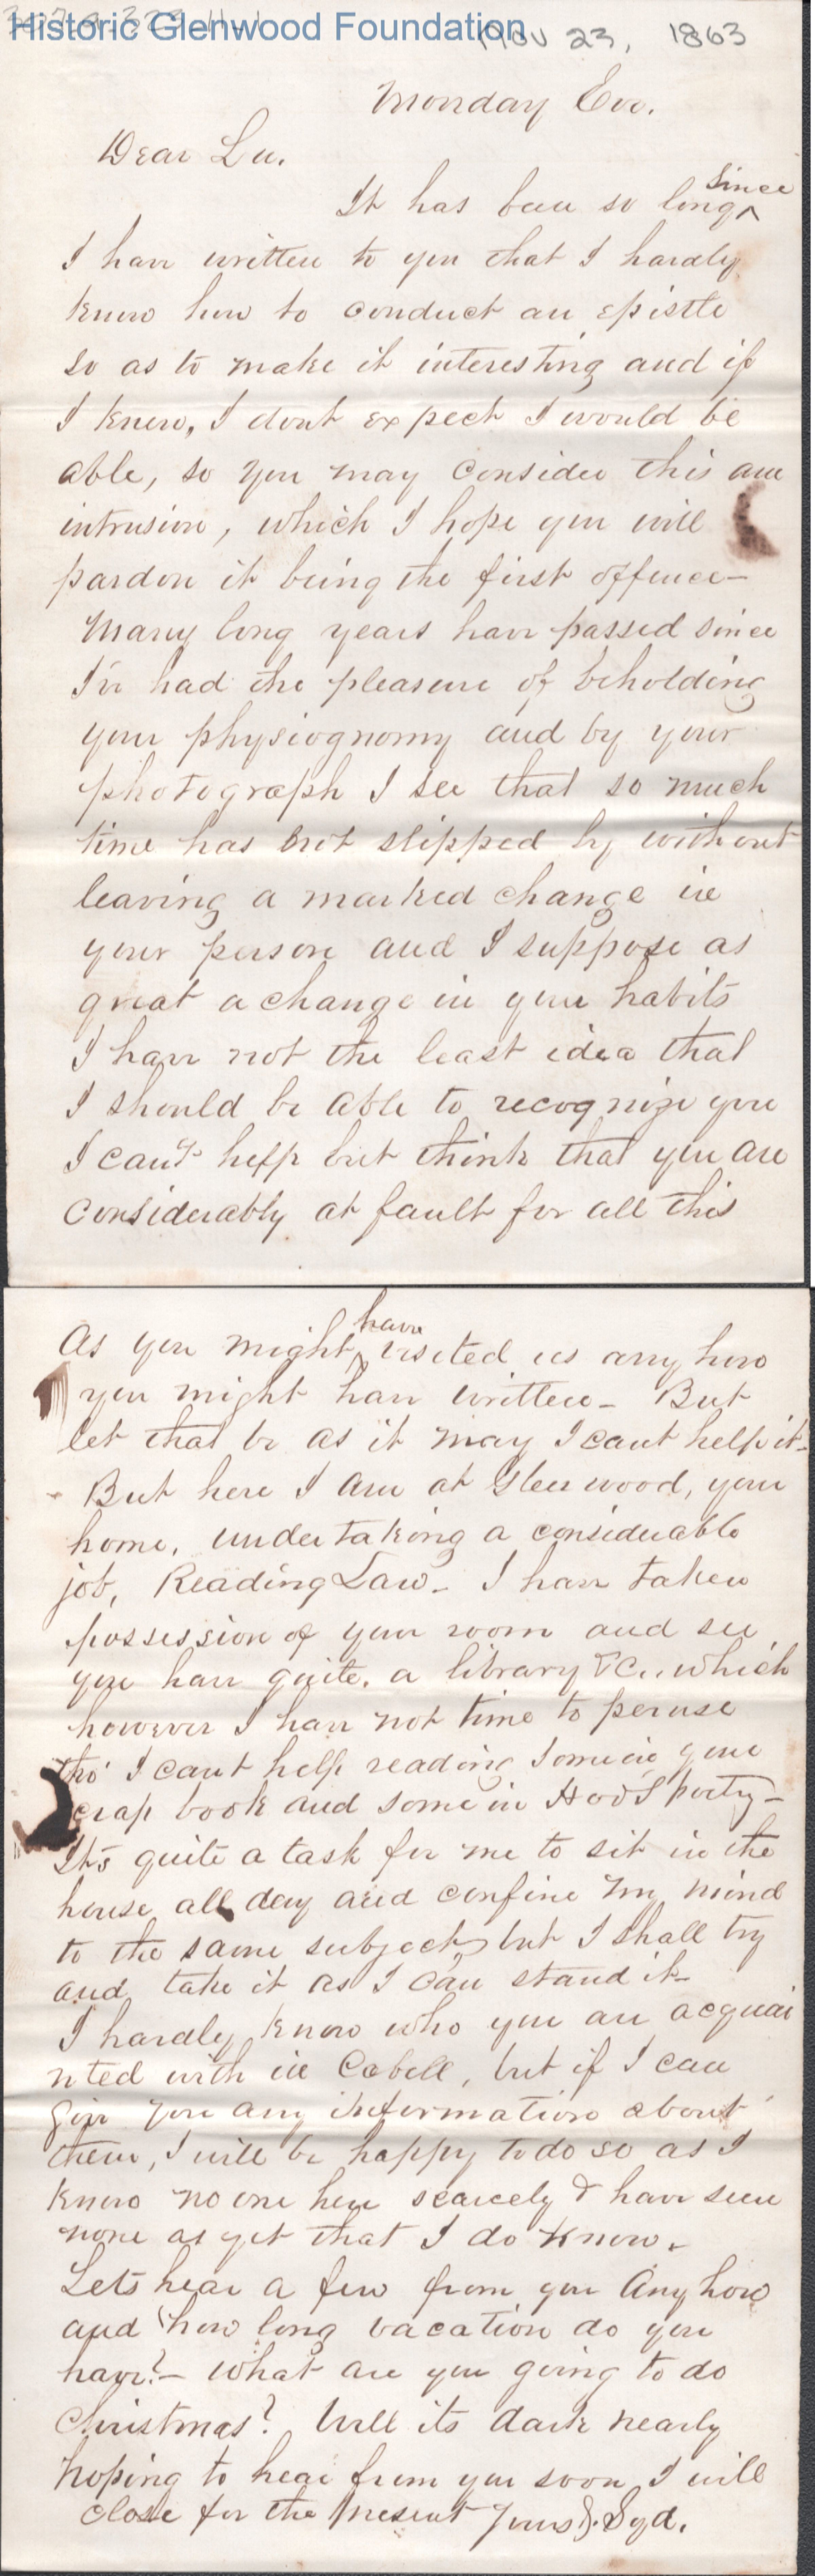 Historic Glenwood Foundation
Nov 23, 1863
Monday Eve.
Dear Lu.
It has been so long since
I have written to you that I hardly
know how to conduct an epistle
so as to make it interesting and if
I knew, I dont expect I would be
able, so you may consider this an
intrusion, which I hope you will
pardon it being the first offence—
Many long years have passed since
I've had the pleasure of beholding
your physiognomy and by your
photograph I see that so much
time has not slipped by without
leaving a marked change in
your person and I suppose as
great a change in your habits
I have not the least idea that
I should be able to recognize you
I can't help but think that you are
considerably at fault for all this
As you might have visited us any how
you might have written— But
let that be as it may I cant help it—
- But here I am at Glenwood, your
home, undertaking a considerable
job, Reading Law— I have taken
possession of your room and see
you have quite. a library &c., which
however I have not time to peruse
tho' I cant help reading some in your
scrap book and some in
It's quite a task for me to sit in the
house all day and confine my mind
to the same subject, but I shall try
and take it as I can stand it—
I hardly know who you are acquai
nted with in Cabell, but if I can
give you any information about
them, I will be happy to do so as I
know no one here scarcely & have seen
none as yet that I do know.
Lets hear a few from you Any how
and how long vacation do you
have?— What are you going to do
Christmas? Well its dark nearly
hoping to hear from you soon I will
close for the present Yours Syd.